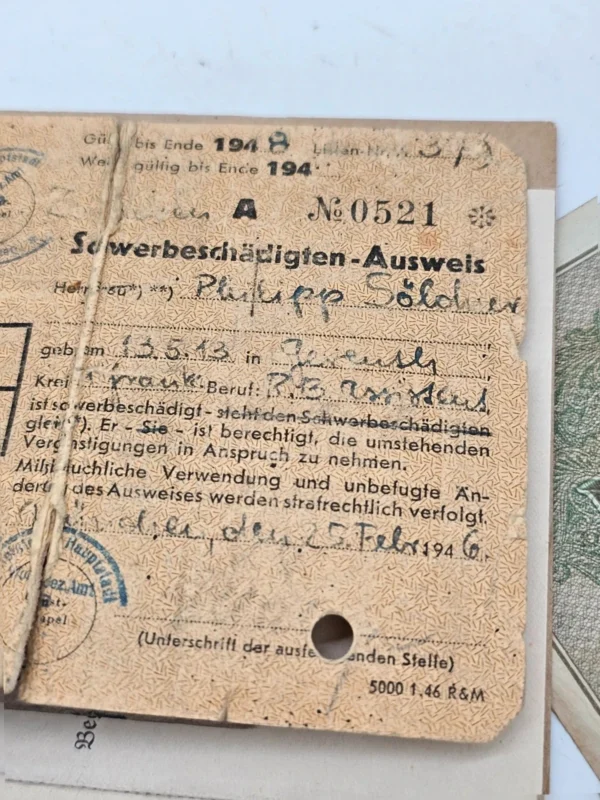 Gül bis Ende 1948 Listen-Nr. 373
We gültig bis Ende 194
A № 0521
Schwerbeschädigten-Ausweis
Philipp Söldner
geb. am 13.5.13 in
Krei Beruf: R.B. Assistent
ist schwerbeschädigt - steht den Schwerbeschädigten
gleich**). Er - Sie - ist berechtigt, die umstehenden
Vergünstigungen in Anspruch zu nehmen.
Mißbräuchliche Verwendung und unbefugte Än-
derung des Ausweises werden strafrechtlich verfolgt.
München, den 25. Febr. 1946.
Hauptstadt
(Unterschrift der ausfe enden Stelle)
5000 1,46 R&M
Be